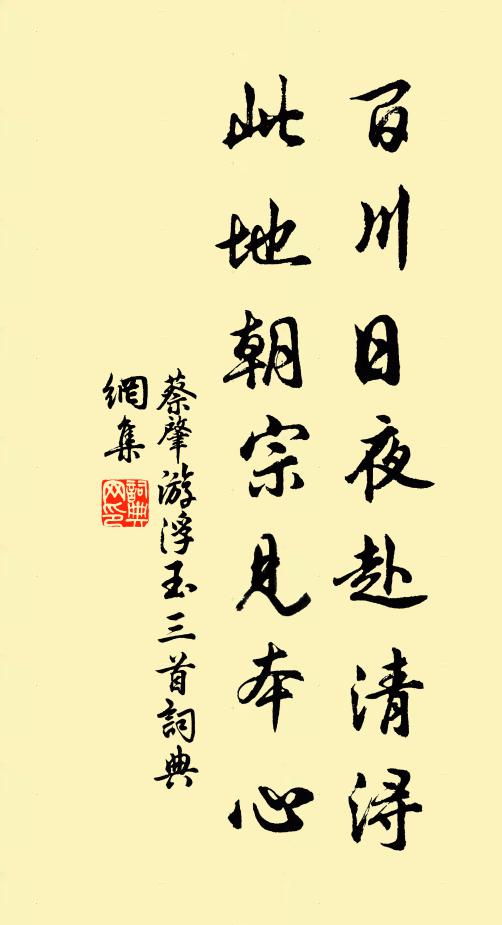 百川日夜赴清浔
此地朝宗見本心
蔡肇游浮玉三首詞典
網集
詞典網印